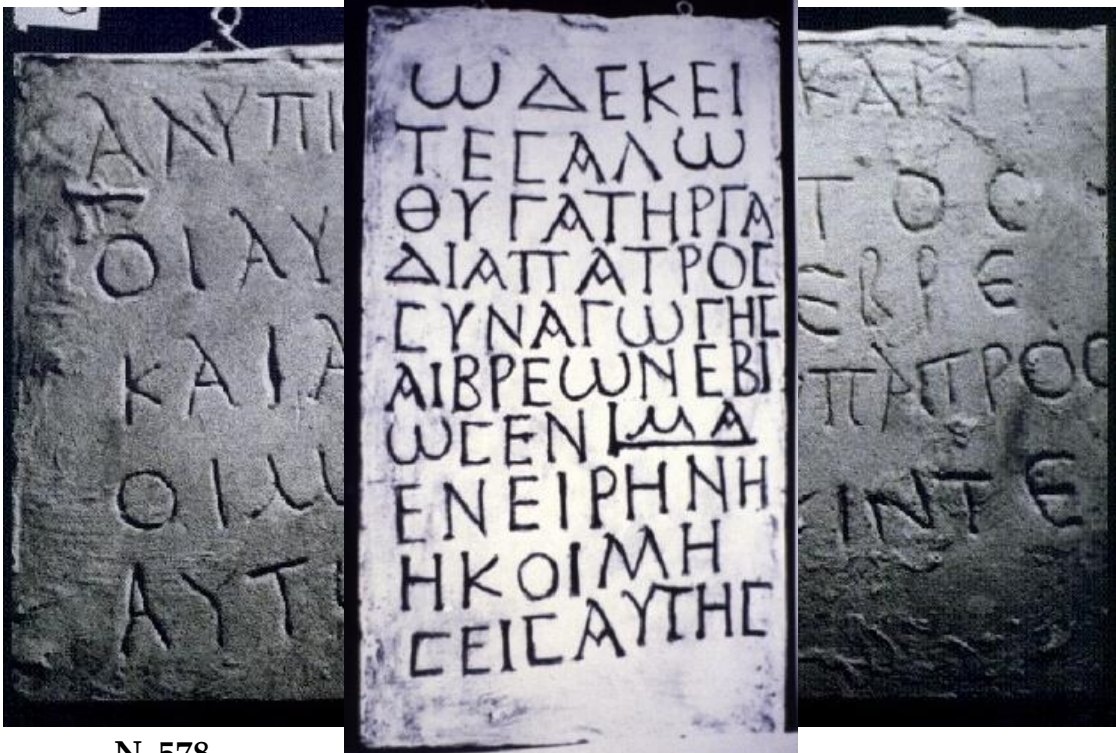 ΑΝΥΠΙ
ΟΙΑΥ
ΚΑΙΑ
ΑΥΤ
ωΔΕΚΕΙ
ΤΕϹΑΛω
ΘΥΓΑΤΗΡΓΑ
ΔΙΑΠΑΤΡΟϹ
ϹΥΝΑΓωΓΗϹ
ΑΙΒΡΕωΝΕΒΙ
ωϹΕΝ LΜΑ
ΕΝΕΙΡΗΝΗ
ΗΚΟΙΜΗ
ϹΕΙϹΑΥΤΗϹ
ΤΟϹ
ΕΒΡΕ
ΠΑΤΡΟϹ
ΙΝΤΕ
N. 578